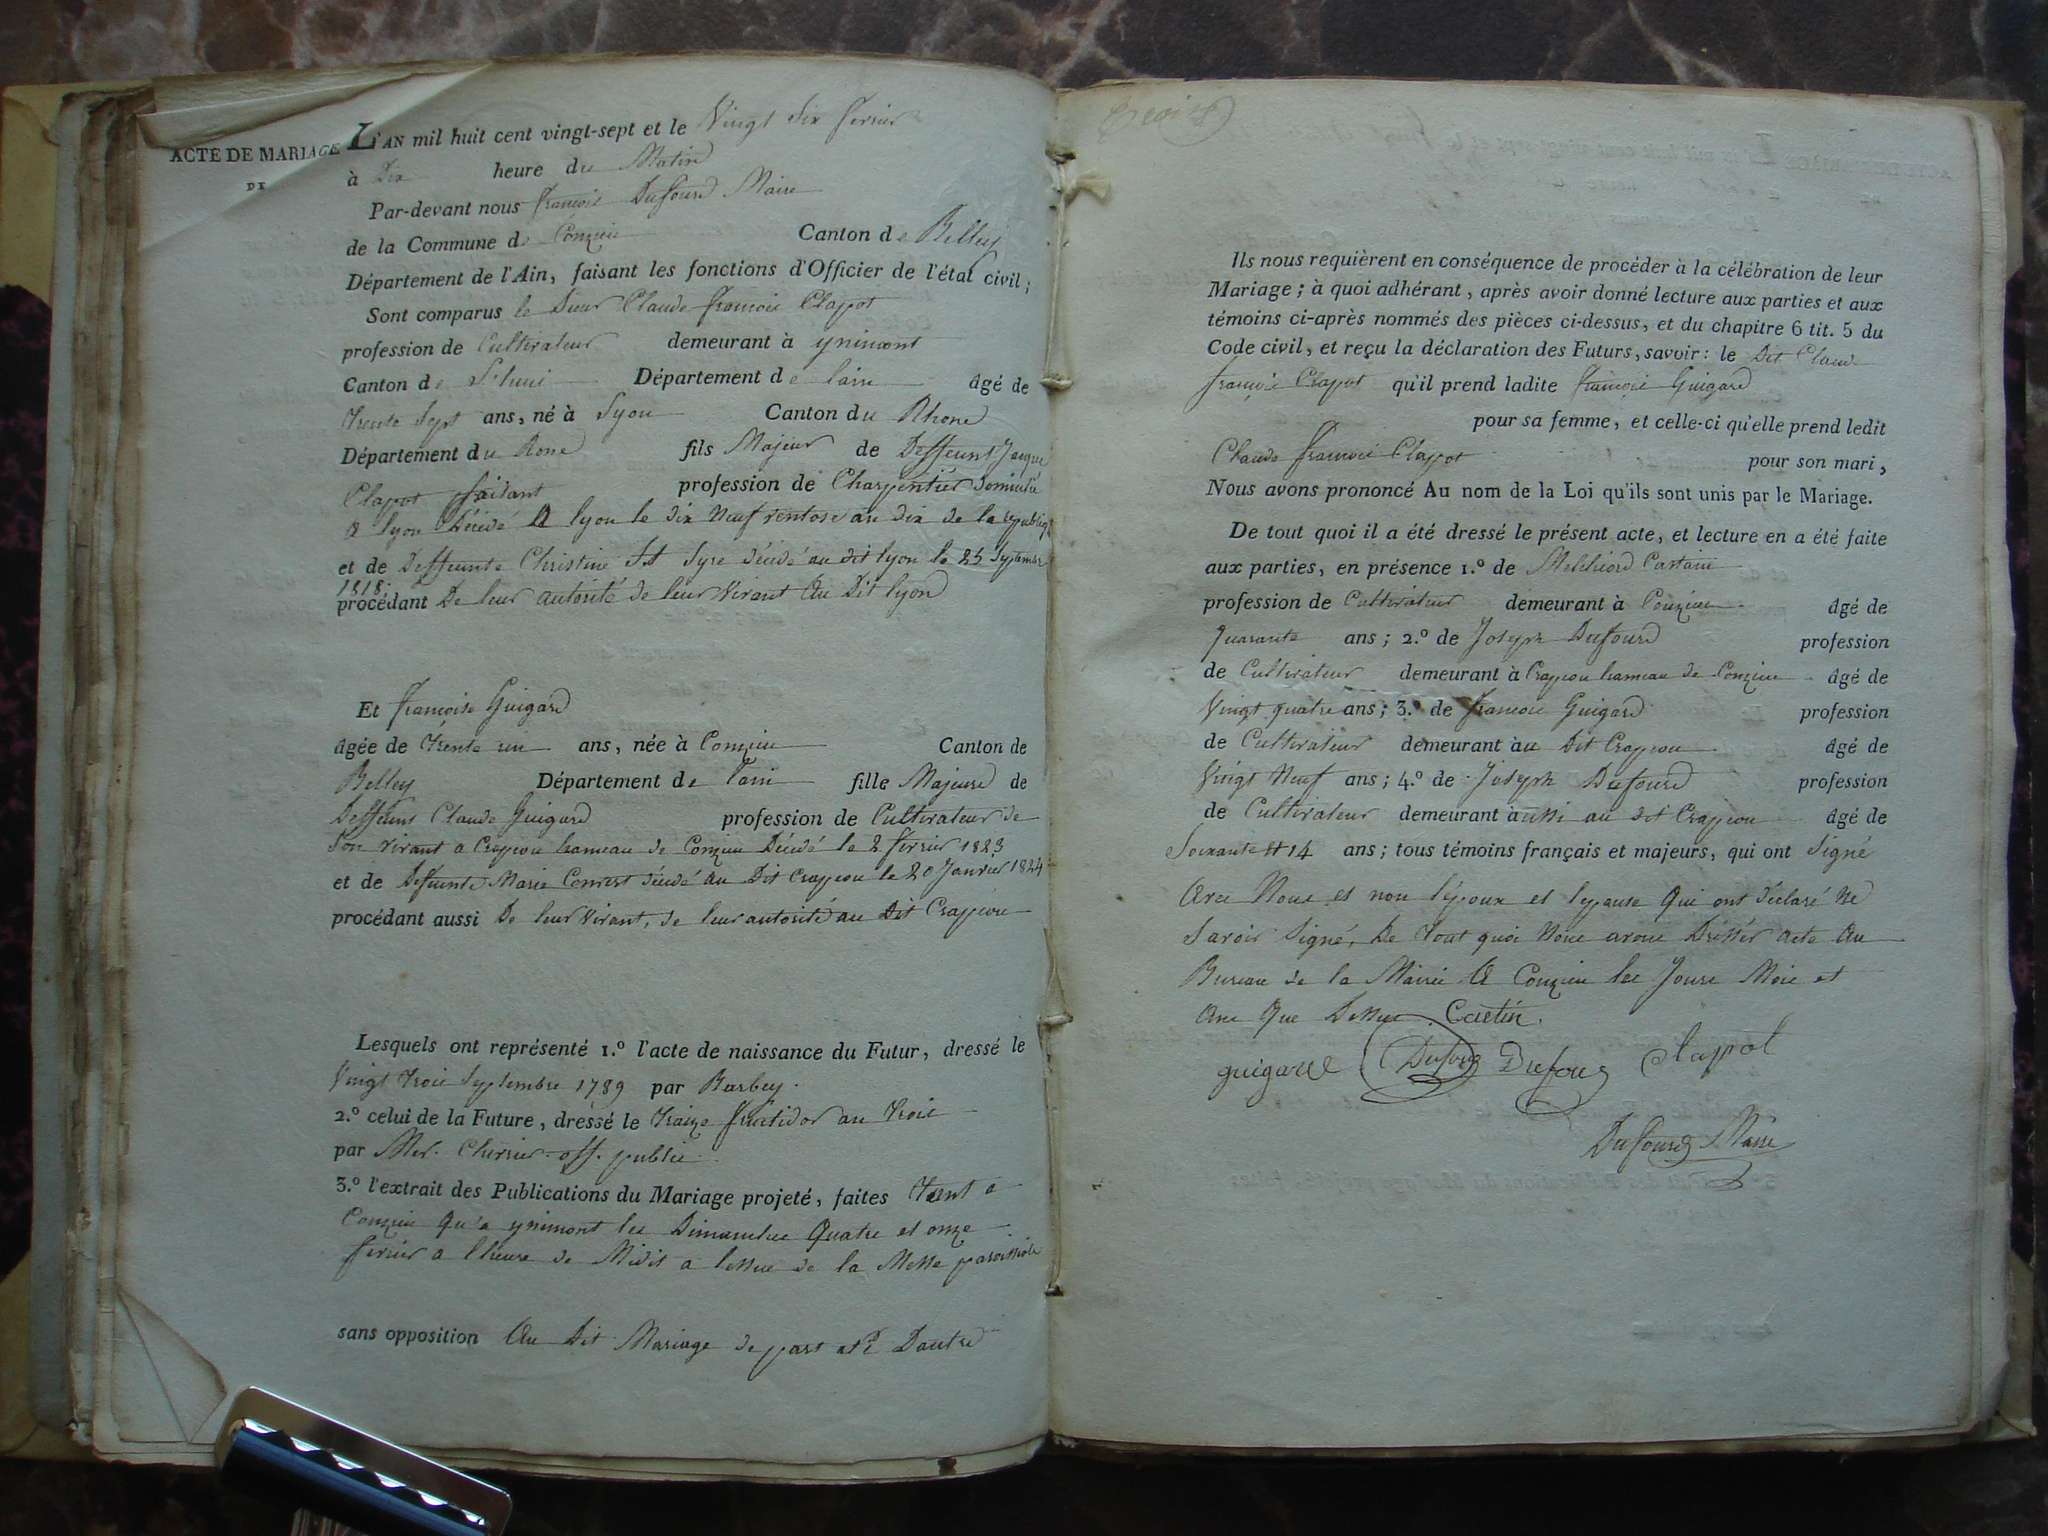 ACTE DE MARIAGE
DE
L'AN mil huit cent vingt-sept et le Vingt Six fevrier
à Dix heure du Matin
Par-devant nous françois Dufourd Maire
de la Commune de Conzieu Canton de Belley
Département de l'Ain, faisant les fonctions d'Officier de l'état civil;
Sont comparus le Sieur Claude françois Clapot
profession de Cultivateur demeurant à ynimont
Canton de Département de lain âgé de
trente Sept ans, né à Lyon Canton du Rhone
Département du Rone fils Majeur de Deffeunt Jacque
Clapot faisant profession de Charpentier Domicilié
a lyon Décédé A lyon le dix Neuf ventose an dix de la republiq
et de Deffeunte Christine décédé au dit lyon le 25 Septembre
1818.
procédant De leur autorité de leur vivant Au Dit lyon
Et françoise Guigard
âgée de trente un ans, née à Conzieu Canton de
Belley Département de lain fille Majeure de
Deffeunt Claude Guigard profession de Cultivateur de
Son vivant a Crapeou hameau de Conzieu Décédé le 2 fevrier 1823
et de Deffeunte Marie décédé au Dit Crapeou le 20 Janvier 1824
procédant aussi De leur vivant, de leur autorité au Dit Crapeou
Lesquels ont représenté 1.º l'acte de naissance du Futur, dressé le
Vingt trois Septembre 1789 par Barbey.
2.º celui de la Future, dressé le traize fructidor an trois
par off. public
3.º l'extrait des Publications du Mariage projeté, faites tant a
Conzieu qu'a ynimont les Dimanches Quatre et onze
fevrier a lheure de Midit a lessue de la Messe paroissiale
sans opposition Au Dit Mariage de part et Dautre
Ils nous requièrent en conséquence de procéder à la célébration de leur
Mariage; à quoi adhérant, après avoir donné lecture aux parties et aux
témoins ci-après nommés des pièces ci-dessus, et du chapitre 6 tit. 5 du
Code civil, et reçu la déclaration des Futurs, savoir: le Dit Claude
françois Clapot qu'il prend ladite françoise Guigard
pour sa femme, et celle-ci qu'elle prend ledit
Claude françois Clapot pour son mari,
Nous avons prononcé Au nom de la Loi qu'ils sont unis par le Mariage.
De tout quoi il a été dressé le présent acte, et lecture en a été faite
aux parties, en présence 1.º de Melchiord Castain
profession de Cultivateur demeurant à Conzieu âgé de
Quarante ans; 2.º de Joseph Dufourd profession
de Cultivateur demeurant à Crapeou hameau de Conzieu âgé de
Vingt quatre ans; 3.º de francois Guigard profession
de Cultivateur demeurant àu Dit Crapeou âgé de
Vingt Neuf ans; 4.º de Joseph Dufourd profession
de Cultivateur demeurant àussi au dit Crapeou âgé de
Soixante et 14 ans; tous témoins français et majeurs, qui ont Signé
Avec Nous et non l'époux et lepouse Qui ont déclaré Ne
Savoir Signé, De tout quoi Nous avons Dressér acte Au
Bureau de la Mairie A Conzieu les Jours Mois et
Ans Que Dessus. Castin.
guigard Dufourg Dufourg Clapot
Dufourg Maire